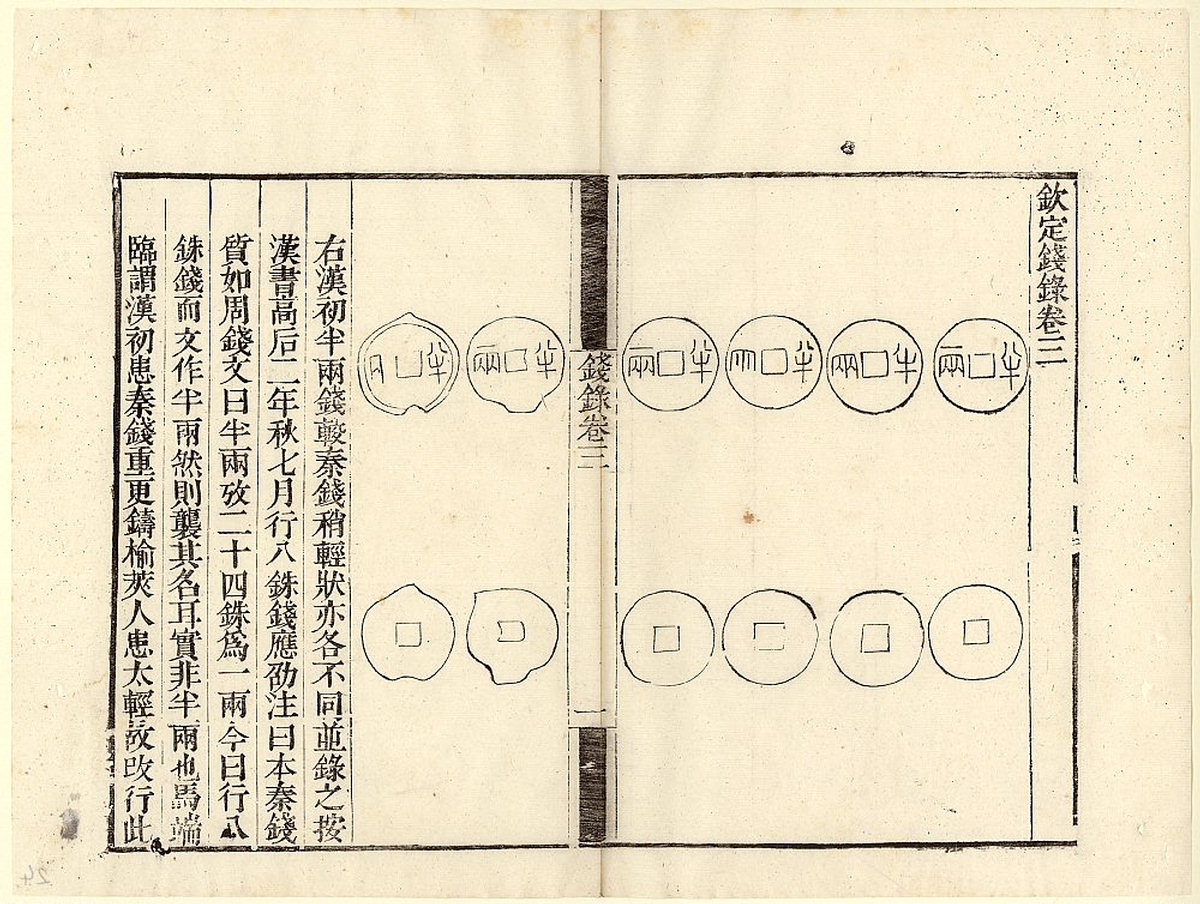 欽定錢錄卷三
半兩
半兩
半兩
半兩
錢錄卷三
一
半兩
半
右漢初半兩錢較秦錢稍輕狀亦各不同並錄之按
漢書高后二年秋七月行八銖錢應劭注曰本秦錢
質如周錢文曰半兩攷二十四銖爲一兩今曰行八
銖錢而文作半兩然則襲其名耳實非半兩也馬端
臨謂漢初患秦錢重更鑄榆莢人患太輕故改行此
24